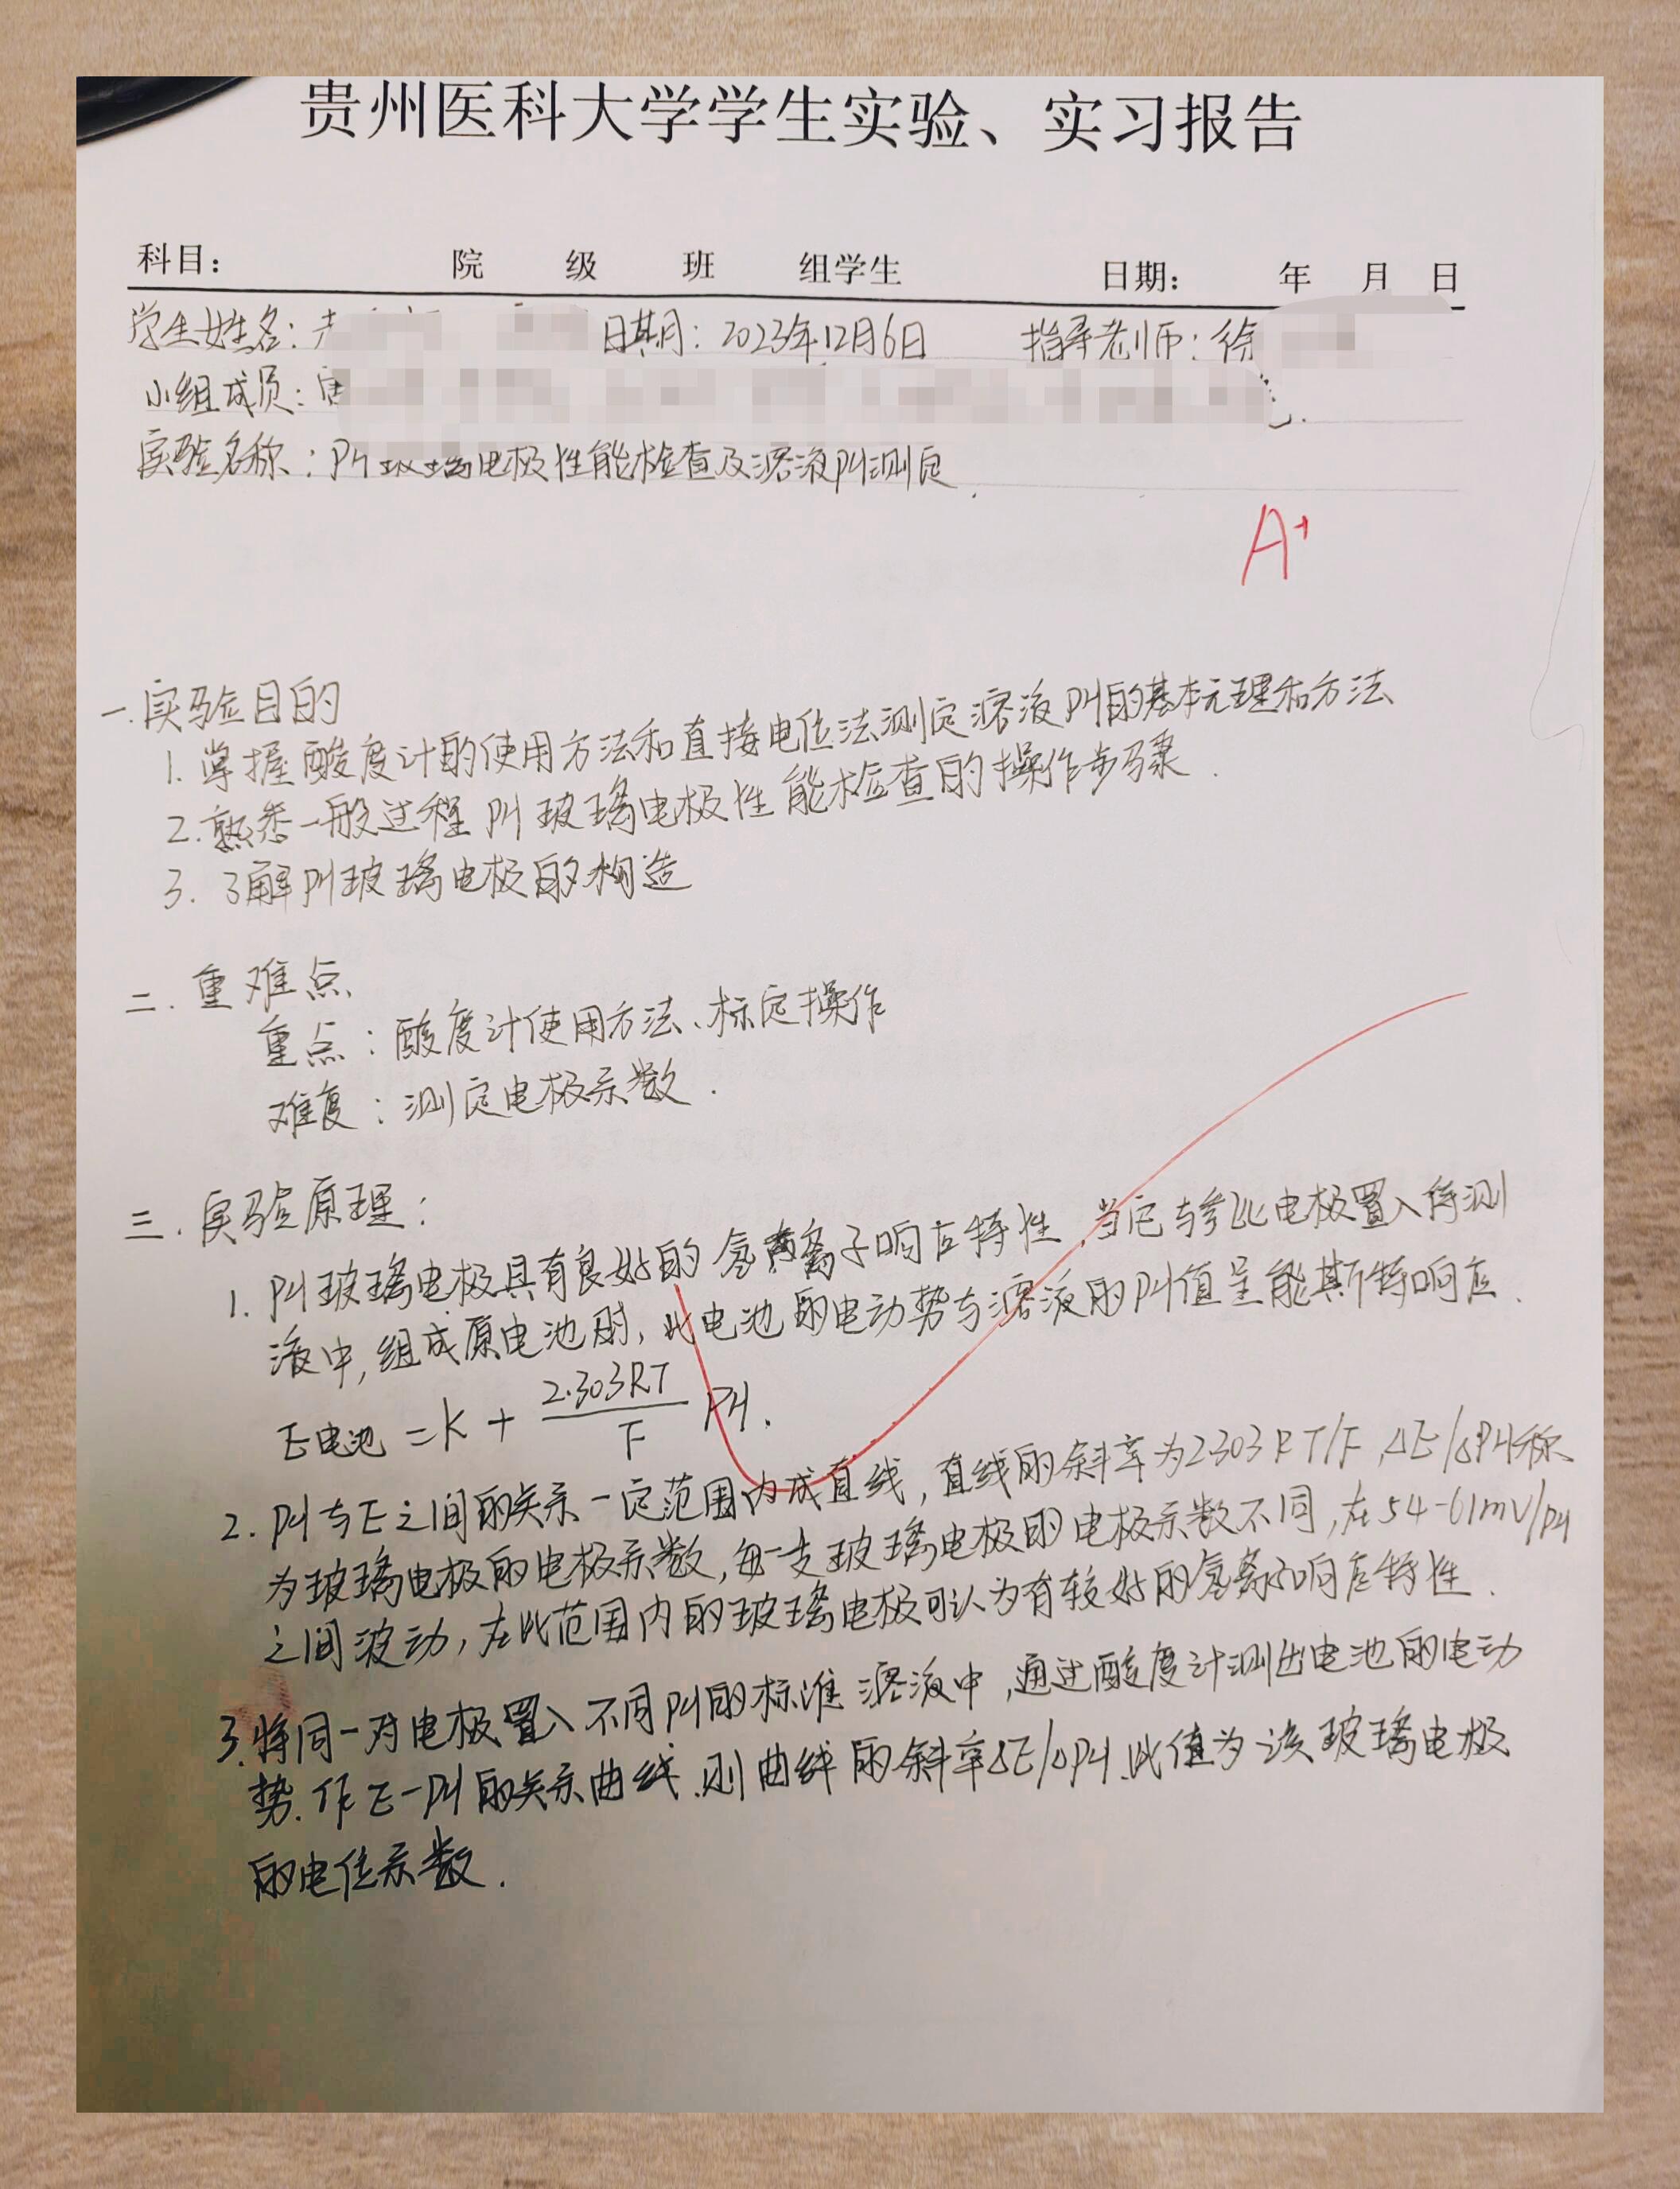 贵州医科大学学生实验、实习报告
科目: 院 级 班 组学生 日期: 年 月 日
学生姓名: 日期: 2023年12月6日 指导老师: 徐
小组成员: 唐
实验名称: PH玻璃电极性能检查及溶液PH测定
A+
一.实验目的
1. 掌握酸度计的使用方法和直接电位法测定溶液PH的基本元理和方法
2. 熟悉一般过程PH玻璃电极性能检查的操作步骤.
3. 了解PH玻璃电极的构造
二. 重难点
重点: 酸度计使用方法、标定操作
难复: 测定电极系数.
三. 实验原理:
1. PH玻璃电极具有良好的氢离子响应特性,当它与参比电极置入待测
液中,组成原电池时,此电池的电动势与溶液的PH值呈能其斯特响应.
E电池 = K + 2.303RT/F PH.
2. PH与E之间的关系一定范围内成直线,直线的斜率为2.303RT/F,ΔE/ΔPH称
为玻璃电极的电极系数,每一支玻璃电极的电极系数不同,在54-61mV/PH
之间波动,在此范围内的玻璃电极可认为有较好的氢离子响应特性.
3. 将同一对电极置入不同PH的标准溶液中,通过酸度计测出电池的电动
势.作E-PH的关系曲线.则曲线的斜率ΔE/ΔPH.此值为该玻璃电极
的电位系数.